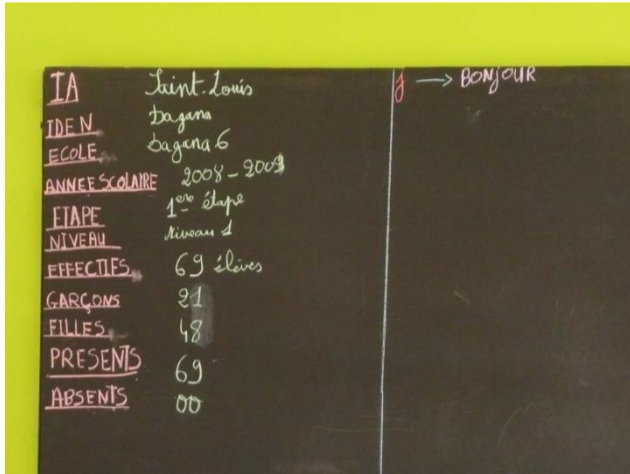 IA Saint-Louis
IDEN Dagana
ECOLE Dagana 6
ANNEE SCOLAIRE 2008-2009
ETAPE 1ère étape
NIVEAU Niveau 1
EFFECTIFS 69 élèves
GARÇONS 21
FILLES 48
PRESENTS 69
ABSENTS 00
j → BONJOUR